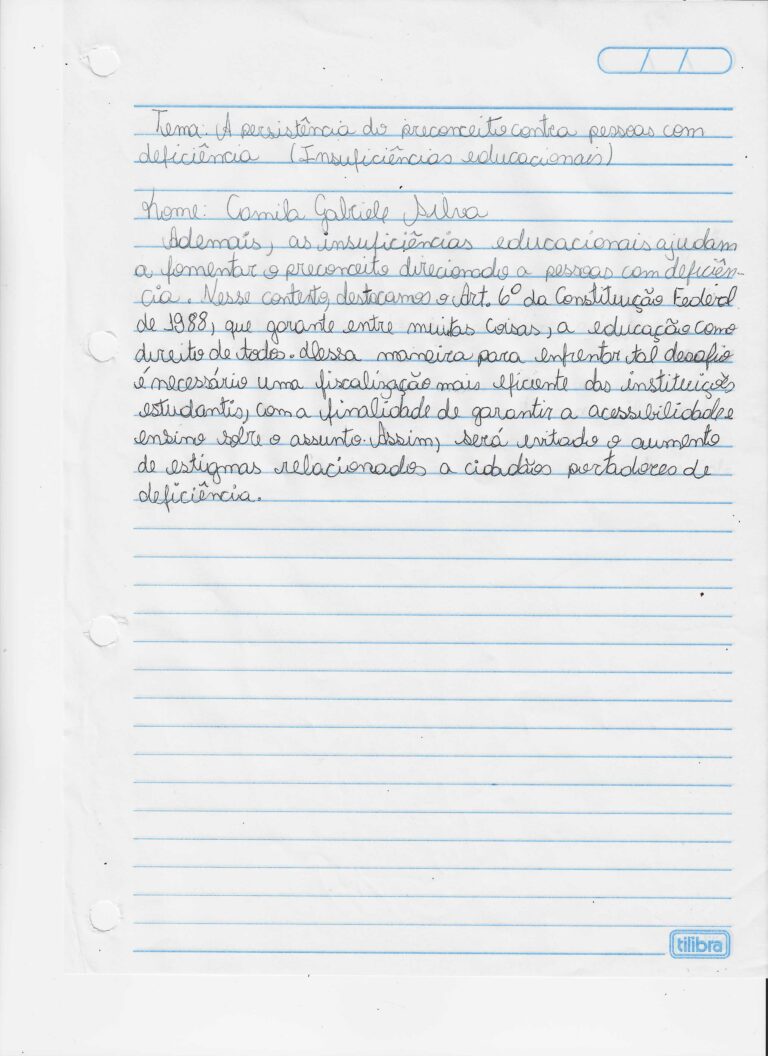 Tema: A persistência do preconceito contra pessoas com
deficiência (Insuficiências educacionais)
Nome: Camila Gabriele Silva
Ademais, as insuficiências educacionais ajudam
a fomentar o preconceito direcionado a pessoas com deficiên-
cia. Nesse contexto, destacamos o Art. 6º da Constituição Federal
de 1988, que garante entre muitas coisas, a educação como
direito de todos. Dessa maneira para enfrentar tal desafio
é necessário uma fiscalização mais eficiente das instituições
estudantis, com a finalidade de garantir a acessibilidade e
ensino sobre o assunto. Assim, será evitado o aumento
de estigmas relacionados a cidadãos portadores de
deficiência.
tilibra